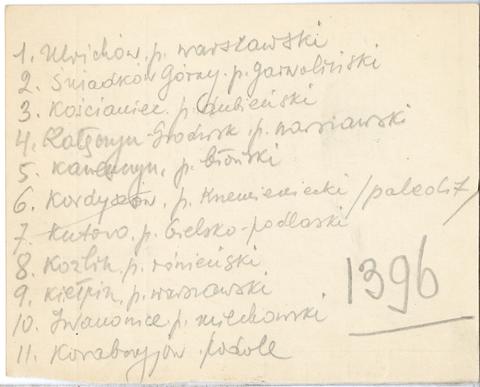 1. Ulrichów. p. warszawski
2. Śniadków Górny. p. garwoliński
3. Kościaniec. p. Lubieński
4. Grodzisk. p. warszawski
5. p. błoński
6. Kordyszów. p. Kremieniecki /paleolit/
7. Kutowo. p. bielsko-podlaski
8. Kozlin. p. rówieński
9. Kiełpin. p. warszawski
10. Iwanowice p. miechowski
11. Podole
1396